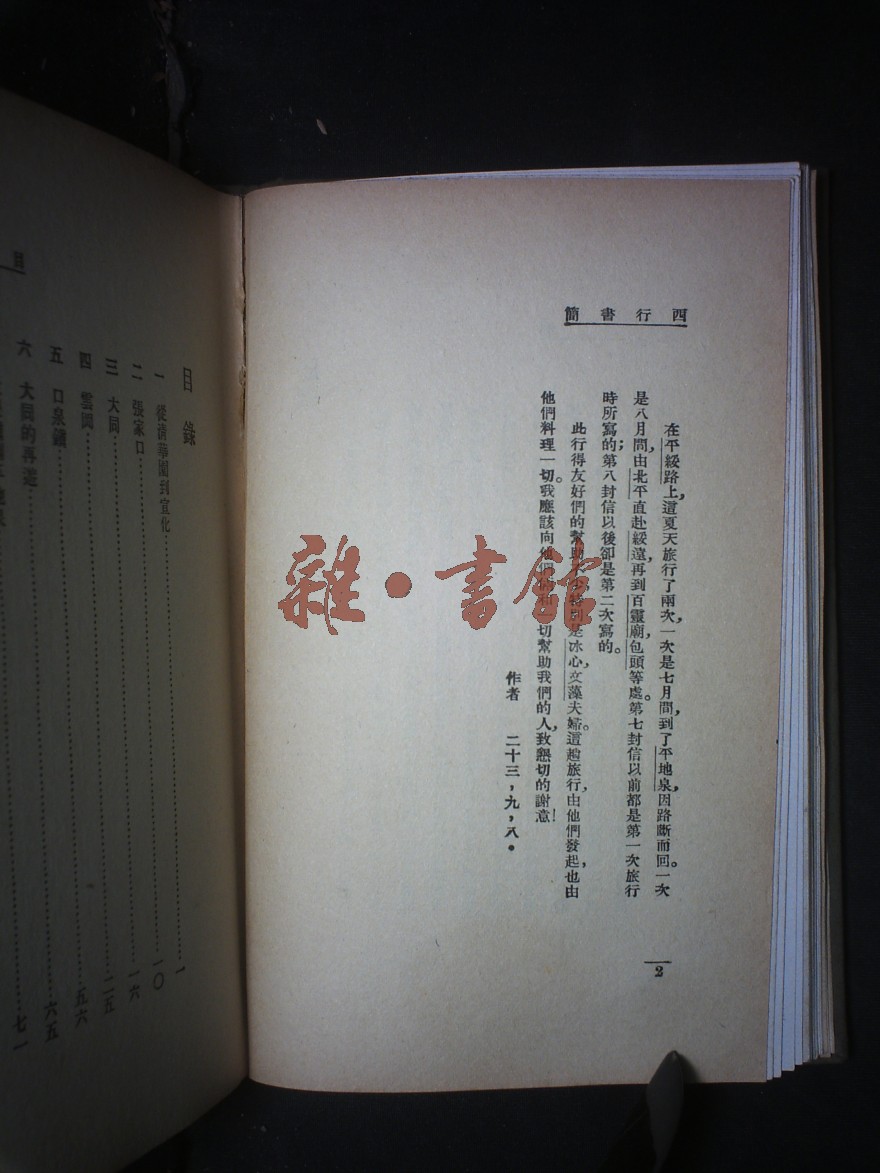 西行書簡
在平綏路上,這夏天旅行了兩次,一次是七月間,到了平地泉,因路斷而回。一次
是八月間,由北平直赴綏遠,再到百靈廟,包頭等處。第七封信以前都是第一次旅行
時所寫的;第八封信以後卻是第二次寫的。
此行得友好們的幫助不少,特別是冰心,文藻夫婦。這趟旅行,由他們發起,也由
他們料理一切。我應該向他們倆和一切幫助我們的人,致懇切的謝意!
作者 二十三,九,八。
2
目錄
一 從清華園到宣化……一
二 張家口……一〇
三 大同……一六
四 雲岡……二五
五 口泉鎮……五六
六 大同的再遊……六五
七一
雜·書館